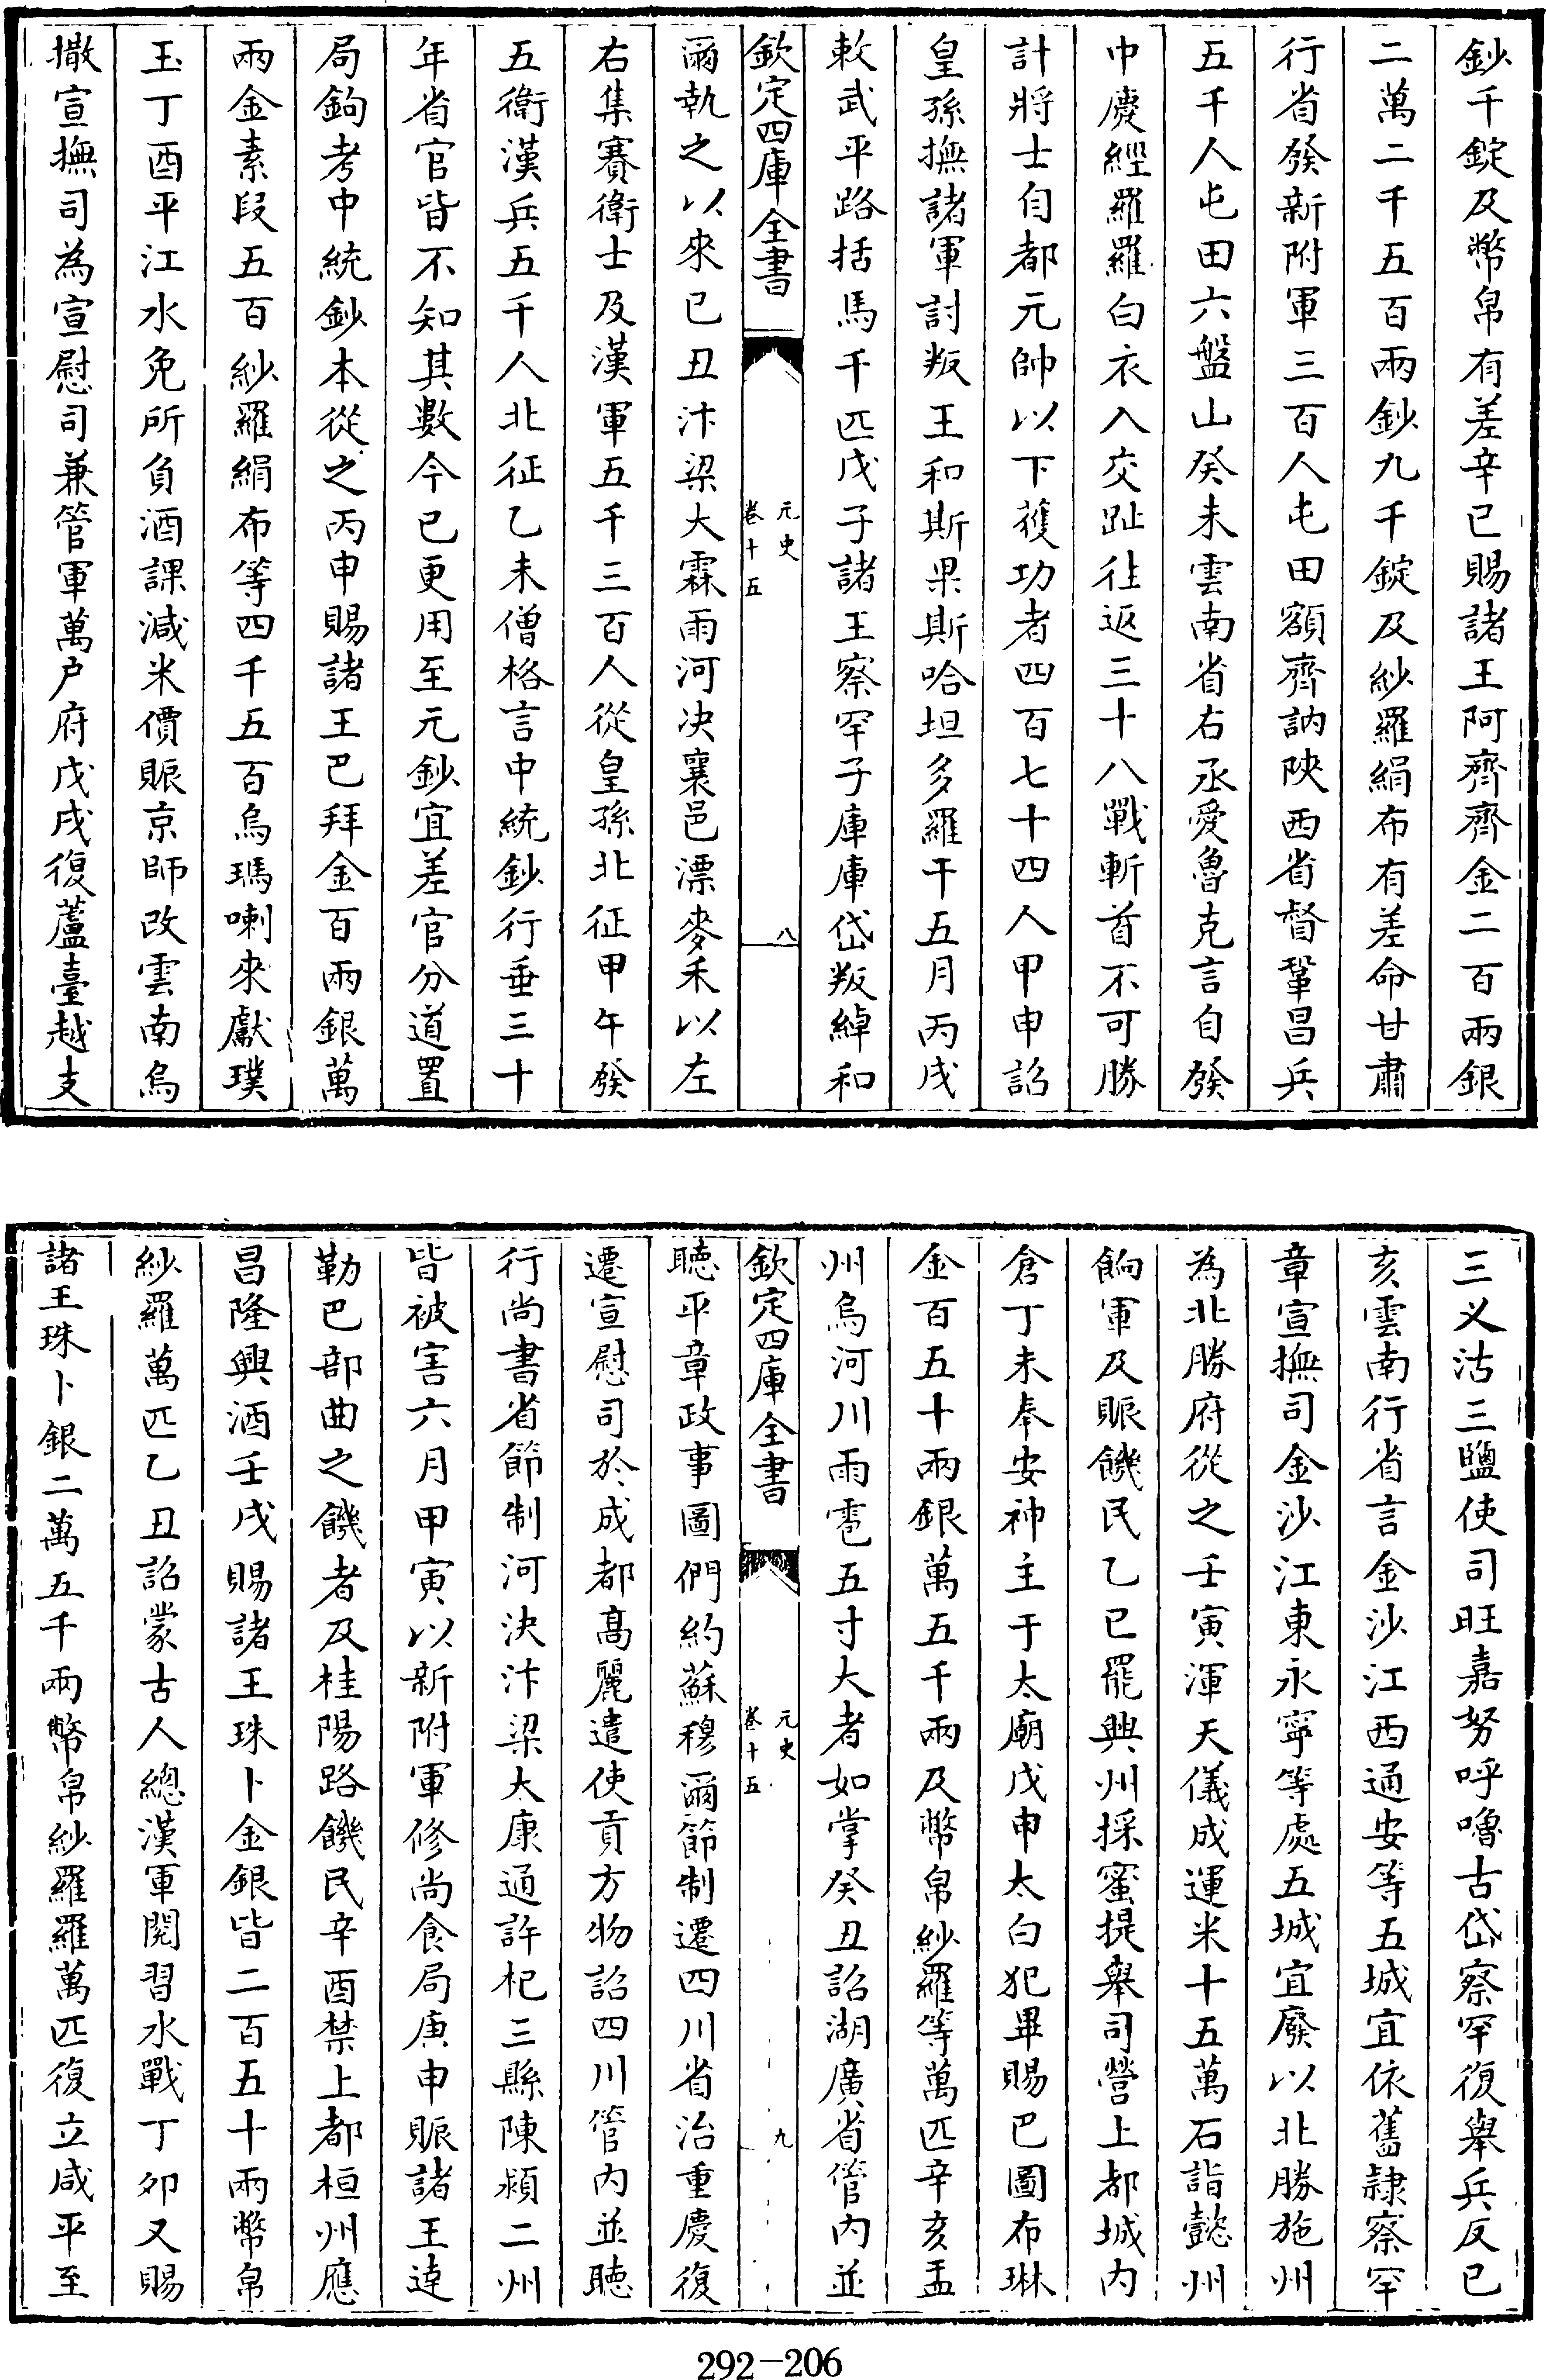 鈔千錠及幣帛有差辛已賜諸王阿齊齊金二百兩銀
二萬二千五百兩鈔九千錠及紗羅絹布有差命甘肅
行省發新附軍三百人屯田額齊訥陜西省督鞏昌兵
五千人屯田六盤山癸未雲南省右丞愛魯克言自發
中慶經羅羅白衣入交趾往返三十八戰斬首不可勝
計將士自都元帥以下獲功者四百七十四人甲申詔
皇孫撫諸軍討叛王和斯果斯哈坦多羅干五月丙戌
敕武平路括馬千匹戊子諸王察罕子庫庫岱叛綽和
欽定四庫全書
元史
卷十五
八
爾執之以來已丑汴梁大霖雨河决襄邑漂麥禾以左
右集賽衛士及漢軍五千三百人從皇孫北征甲午發
五衛漢兵五千人北征乙未僧格言中統鈔行垂三十
年省官皆不知其數今已更用至元鈔宜差官分道置
局鉤考中統鈔本從之丙申賜諸王巴拜金百兩銀萬
兩金素段五百紗羅絹布等四千五百烏瑪喇來獻璞
玉丁酉平江水免所負酒課減米價賑京師改雲南烏
撒宣撫司為宣慰司兼管軍萬户府戊戌復蘆臺越支
三义沽三鹽使司旺嘉努呼嚕古岱察罕復舉兵反已
亥雲南行省言金沙江西通安等五城宜依舊隸察罕
章宣撫司金沙江東永寧等處五城宜廢以北勝施州
為北勝府從之壬寅渾天儀成運米十五萬石詣懿州
餉軍及賑饑民乙已罷興州採蜜提舉司營上都城内
倉丁未奉安神主于太廟戊申太白犯畢賜巴圖布琳
金百五十兩銀萬五千兩及幣帛紗羅等萬匹辛亥孟
州烏河川雨雹五寸大者如掌癸丑詔湖廣省管内並
欽定四庫全書
元史
卷十五
九
聽平章政事圖們約蘇穆爾節制遷四川省治重慶復
遷宣慰司於成都髙麗遣使貢方物詔四川管内並聽
行尚書省節制河決汴梁太康通許杞三縣陳潁二州
皆被害六月甲寅以新附軍修尚食局庚申賑諸王達
勒巴部曲之饑者及桂陽路饑民辛酉禁上都桓州應
昌隆興酒壬戌賜諸王珠卜金銀皆二百五十兩幣帛
紗羅萬匹乙丑詔蒙古人總漢軍閱習水戰丁卯又賜
諸王珠卜銀二萬五千兩幣帛紗羅羅萬匹復立咸平至
292-206